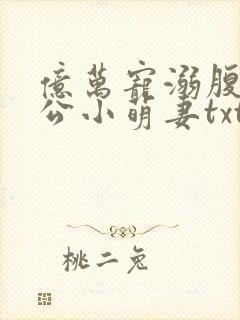 億萬寵溺腹
公小萌妻txt
桃二兔